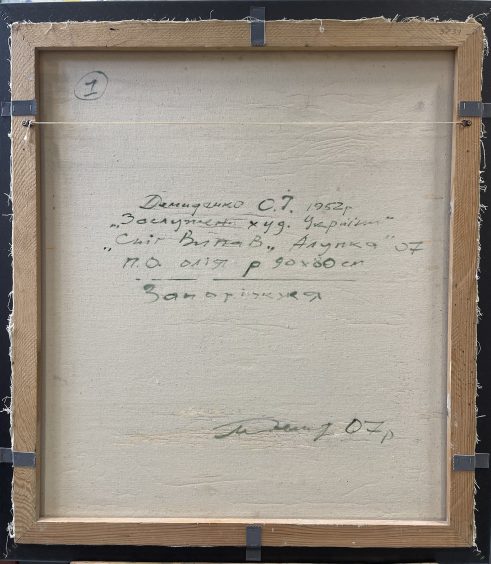 3231
1
Демиденко О.Т. 1952р
„Заслужен худ. України"
„Сніг Випав„ Алупка" 07
п.о. олія р 90х80 см
Запоріжжя
07р